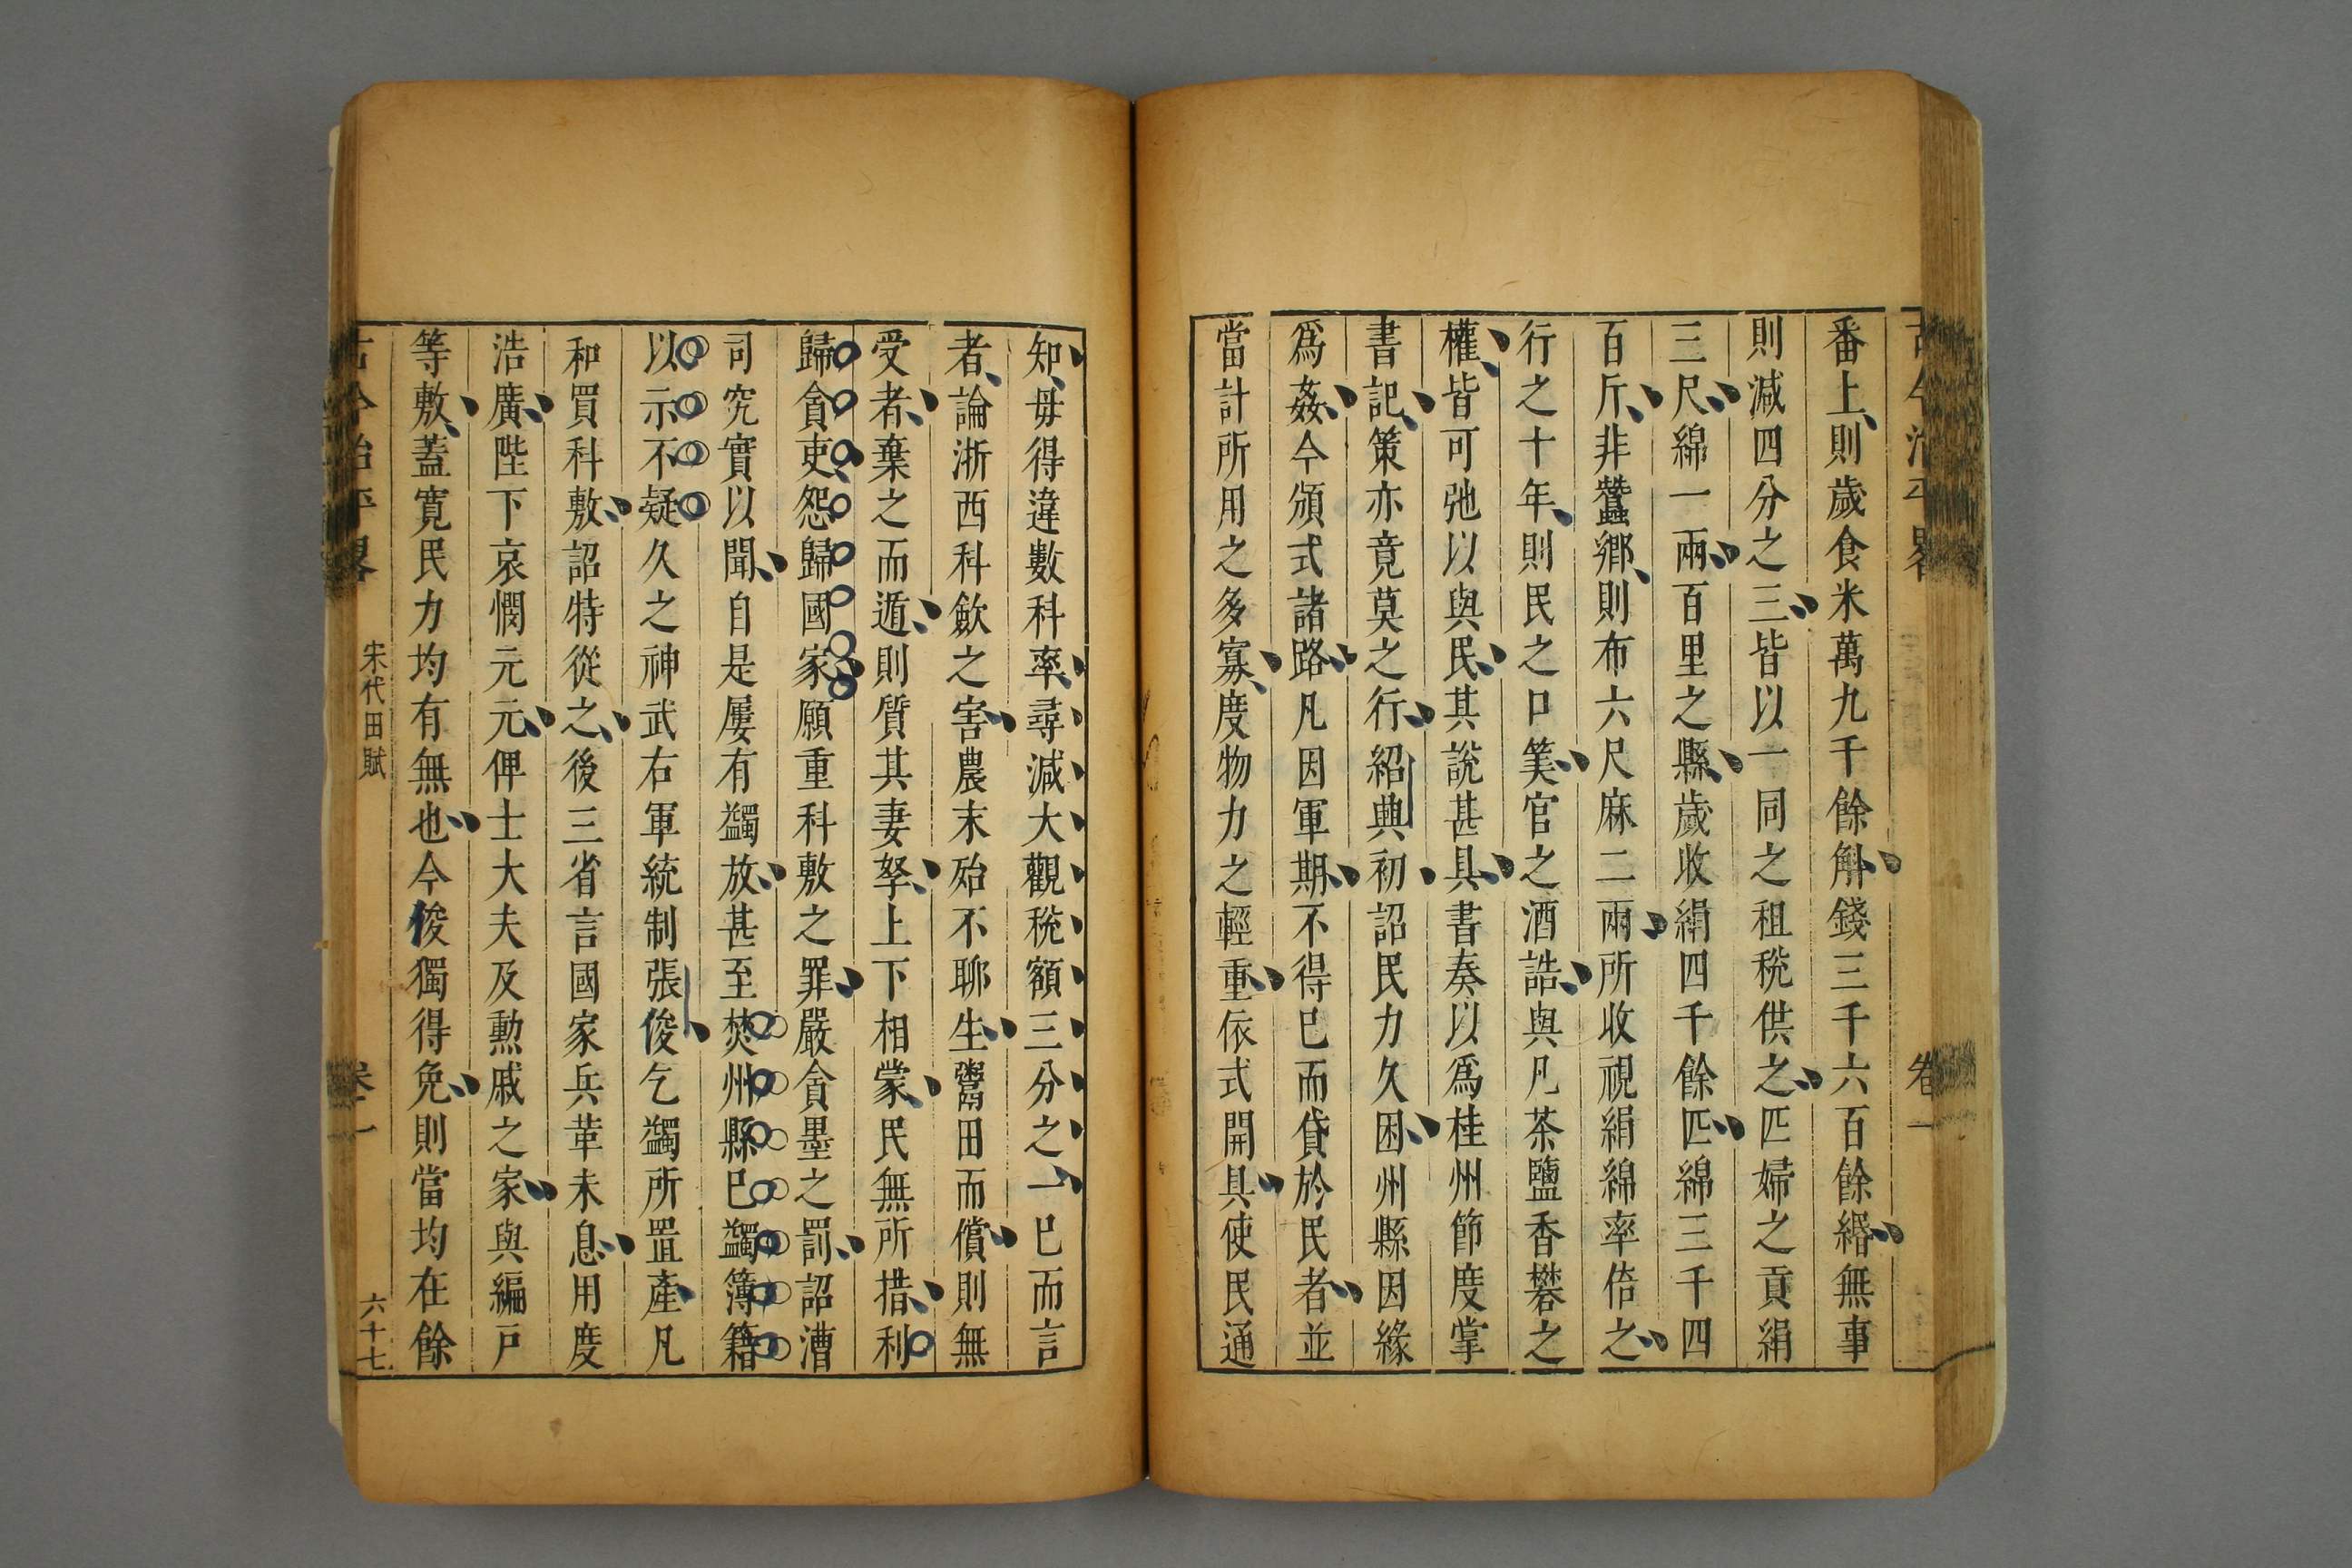 番上則歲食米萬九千餘斛錢三千六百餘緡無事
則減四分之三皆以一同之租稅供之匹婦之貢絹
三尺綿一兩百里之縣歲收絹四千餘匹綿三千四
百斤非蠶鄉則布六尺麻二兩所收視絹綿率倍之
行之十年則民之口筭官之酒誥與凡茶鹽香礬之
權皆可弛以與民其說甚具書奏以爲桂州節度掌
書記策亦竟莫之行紹興初詔民力久困州縣因緣
爲姦今頒式諸路凡因軍期不得巳而貸於民者並
當計所用之多寡度物力之輕重依式開具使民通
知毋得違數科率尋減大觀稅額三分之一巳而言
者論浙西科歛之害農末殆不聊生鬻田而償則無
受者棄之而遁則質其妻孥上下相蒙民無所措利
歸貪吏怨歸國家願重科敷之罪嚴貪墨之罰詔漕
司究實以聞自是屢有蠲放甚至焚州縣巳蠲簿籍
以示不疑久之神武右軍統制張俊乞蠲所置產凡
和買科敷詔特從之後三省言國家兵革未息用度
浩廣陛下哀憫元元俾士大夫及勲戚之家與編戶
等敷蓋寛民力均有無也今俊獨得免則當均在餘
古今治平畧 宋代田賦 卷一 六十七